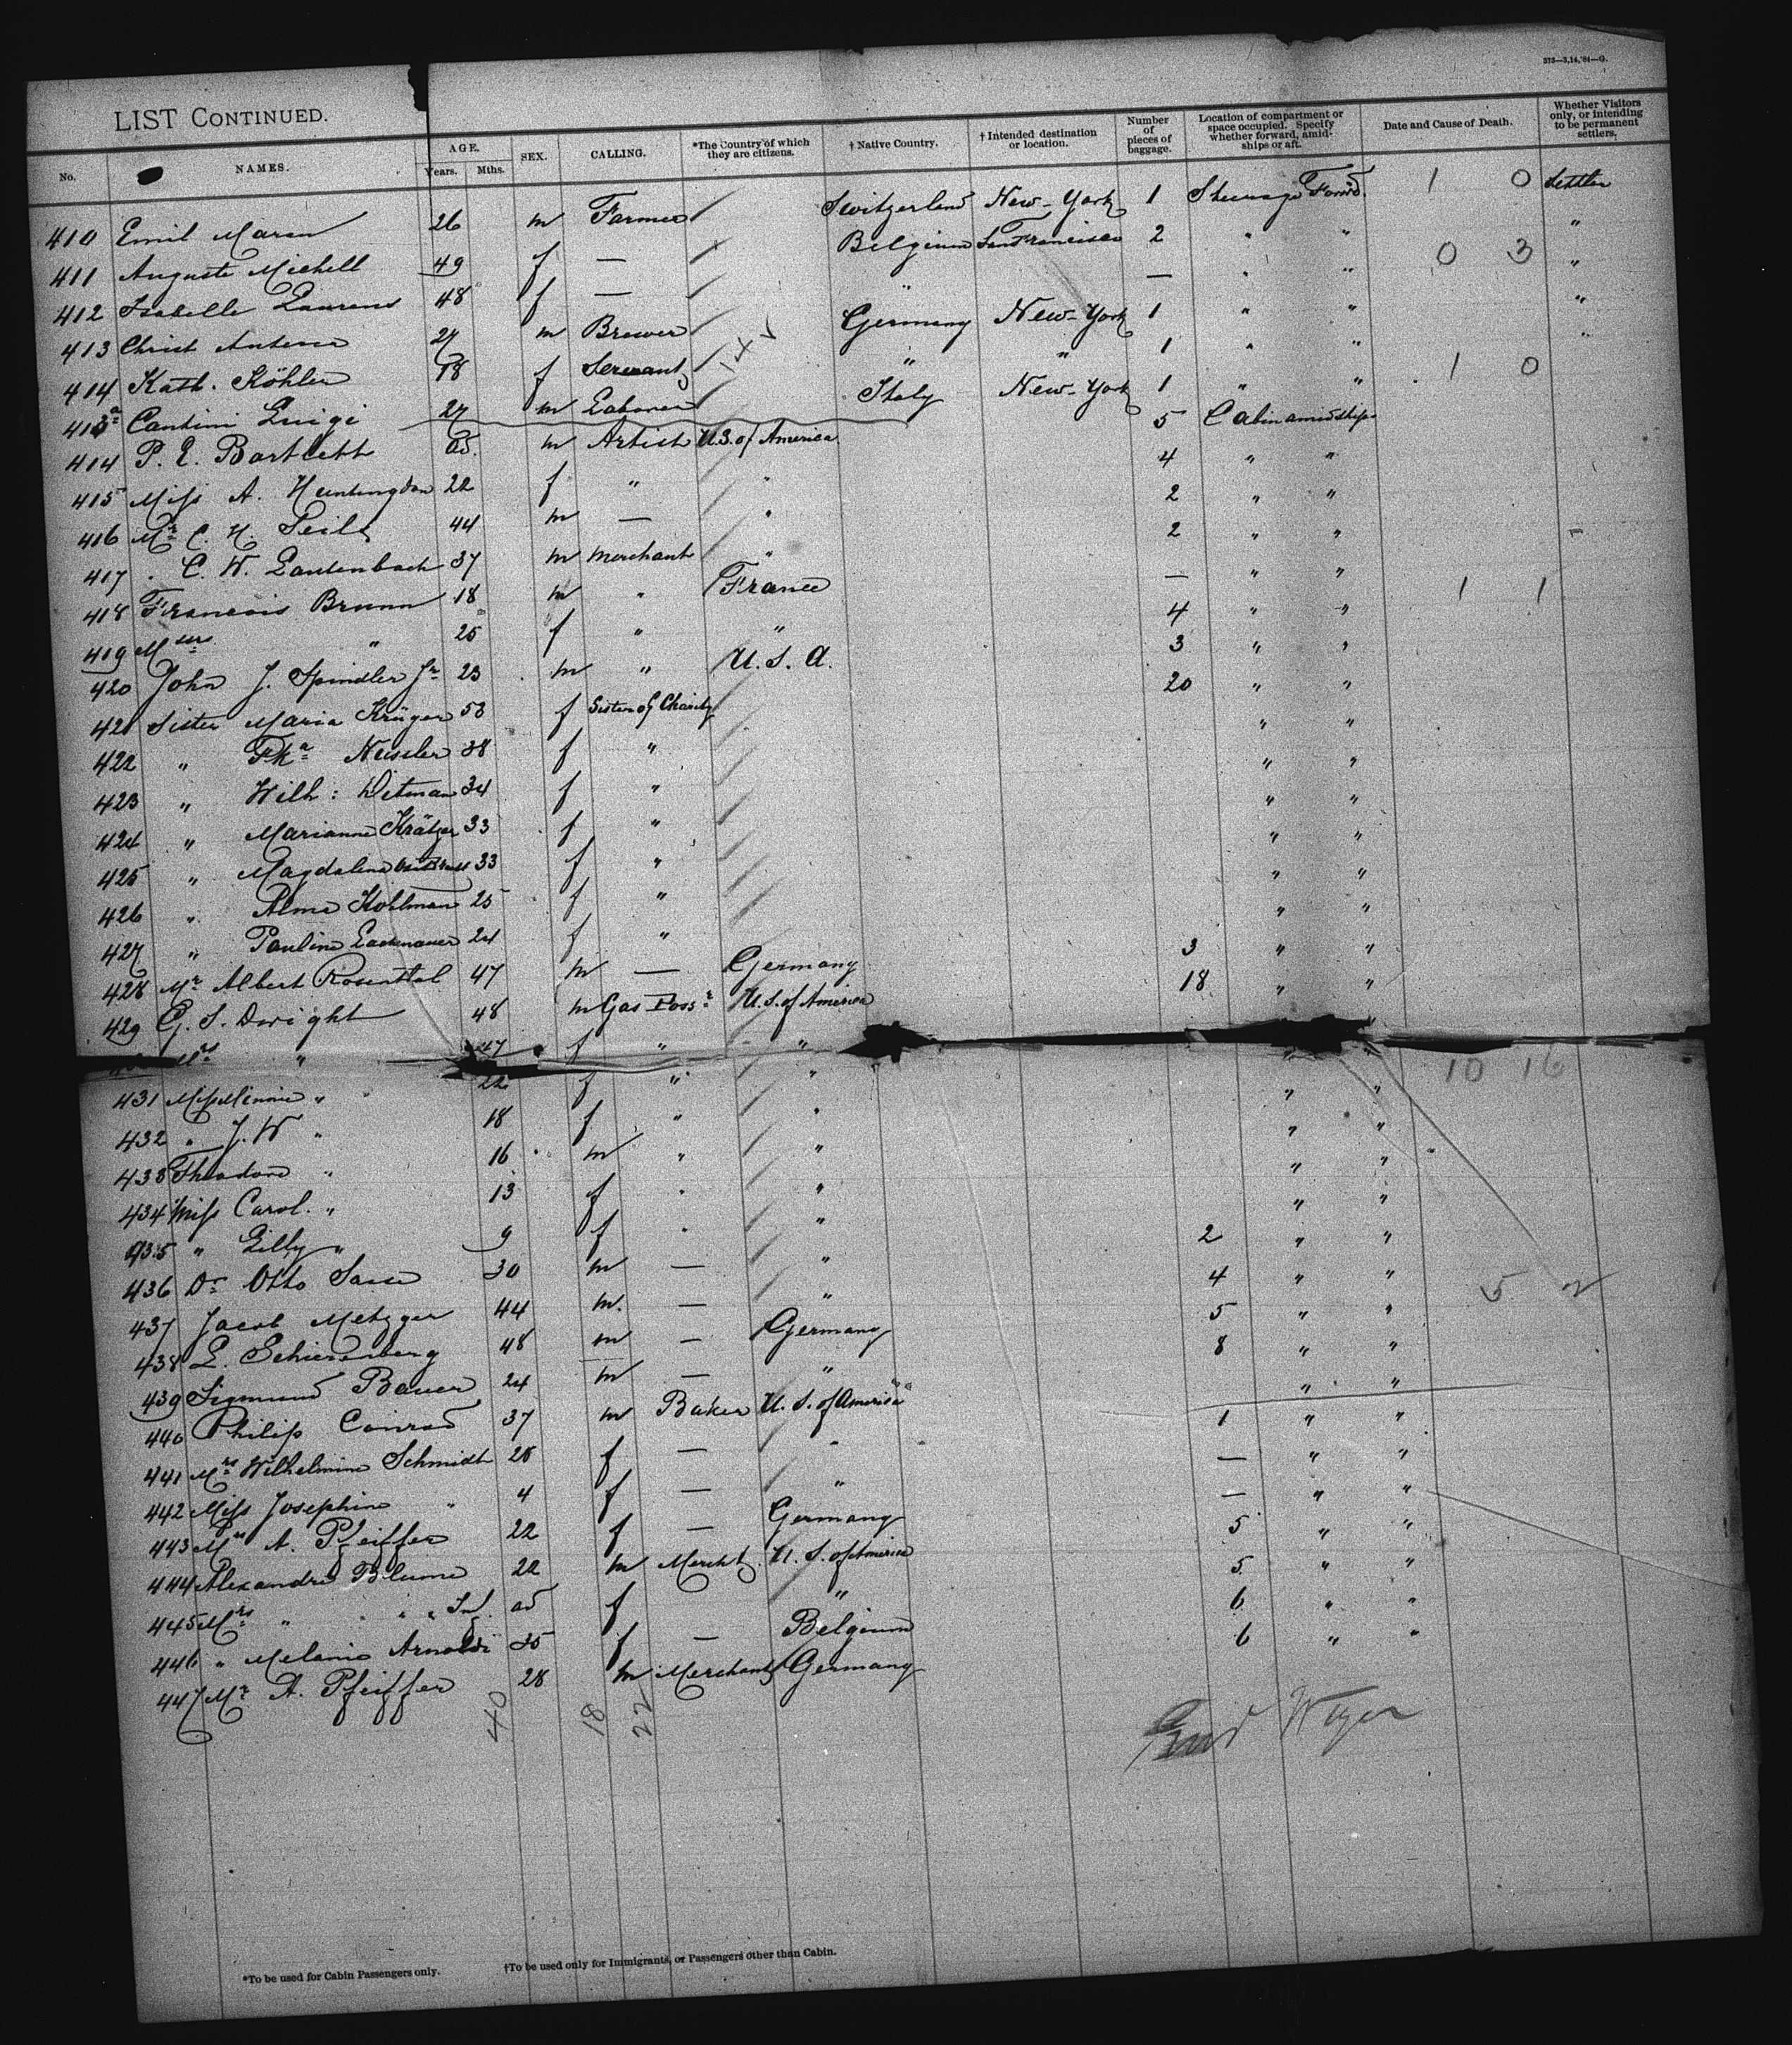 373—3,14,'81—G.
LIST CONTINUED.
No. NAMES. AGE. Years. Mths. SEX. CALLING. *The Country of which they are citizens. † Native Country. † Intended destination or location. Number of pieces of baggage. Location of compartment or space occupied. Specify whether forward, amidships or aft. Date and Cause of Death. Whether Visitors only, or intending to be permanent settlers.
410 Emil 26 m Farmer Switzerland New-York 1 Steerage Forwd. 1 0 Settler
411 Auguste Michell 49 f — Belgium San Francisco 2 " " "
412 Isabelle Laurens 48 f — " — " " 0 3 "
413 Christ 27 m Brewer Germany New-York 1 " " "
414 Kath. Köhler 18 f Servant " " 1 " " "
413a Cantini Luigi 27 m Laborer Italy New-York 1 " " 1 0
414 P. E. Bartlett ad. m Artist U.S. of America 5 Cabin amidships
415 Miss A. Huntingdon 22 f " " 4 " "
416 Mr C. H. Seils 44 m — " 2 " "
417 " C. W. Lautenbach 37 m Merchant " 2 " "
418 Francois Brunn 18 m " France — " " 1 1
419 Mrs " 25 f " " 4 " "
420 John J. Spindler Jr 23 m " U. S. A. 3 " "
421 Sister Maria Krüger 53 f Sister of Charity 20 " "
422 " Fka Neissler 38 f " " "
423 " Wilh: Ditman 34 f " " "
424 " Marianne Krätzer 33 f " " "
425 " Magdalena 33 f " " "
426 " Alma Kohlman 25 f " " "
427 " Pauline 24 f " " "
428 Mr Albert Rosenthal 47 m — Germany 3 " "
429 G. S. Dwight 48 m Gas U. S. of America 18 " "
Mrs " 47 f " " "
431 Miss Minnie " 22 f " " " " 10 16
432 " J. W " 18 f " " " "
433 Theodore " 16 m " " " "
434 Miss Carol. " 13 f " " " "
435 " Lilly " 9 f " " " "
436 Dr Otto Sasse 30 m — " 2 " "
437 Jacob Metzger 44 m. — " 4 " " 5 2
438 L. Schierenberg 48 m — Germany 5 " "
439 Sigmund Bauer 24 m — " 8 " "
440 Philip Conrad 37 m Baker U. S. of America " "
441 Mrs Wilhelmine Schmidt 28 f — " 1 " "
442 Miss Josephine " 4 f — " — " "
443 Mrs A. Pfeiffer 22 f — Germany — " "
444 Alexandre Blume 22 m Mercht. U. S. of America 5 " "
445 Mrs " " " Inf. ad f " 5 " "
446 " Melanie Arnoldi 35 f — Belgium 6 " "
447 Mr A. Pfeiffer 28 m Merchant Germany 6 " "
40 18 22
*To be used for Cabin Passengers only. †To be used only for Immigrants, or Passengers other than Cabin.